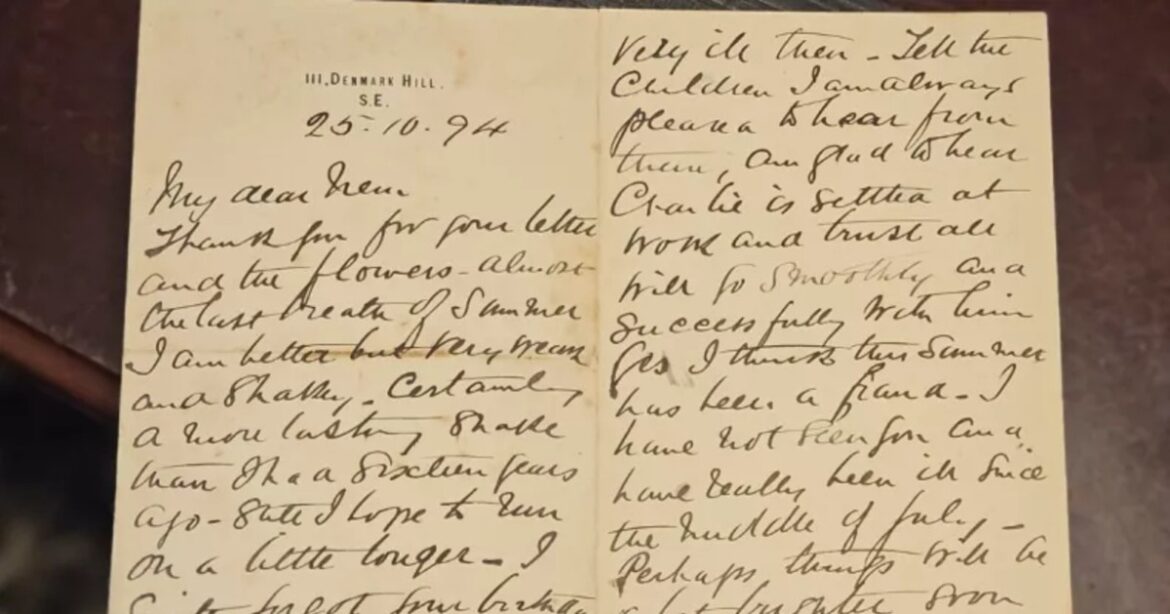 111, DENMARK HILL.
S.E.
25.10.94
My dear Nem
Thank you for your letter
and the flowers - almost
the last breath of Summer
I am better but very weak
and shaky - Certainly
a more lasting shake
than I had sixteen years
ago - Still I hope to run
on a little longer - I
quite forgot your birthday
very ill then - Tell the
Children I am always
pleased to hear from
them, am glad to hear
Charlie is settled at
work and trust all
will go smoothly and
successfully with him
Yes I think this Summer
has been a fraud - I
have not seen you and
have really been ill since
the middle of July -
Perhaps things will be
a bit brighter soon